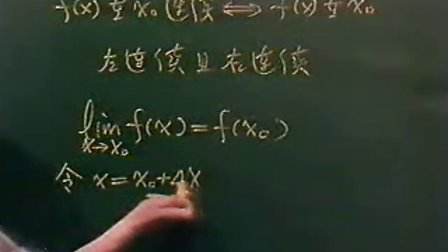 f(x)在x₀连续⟺f(x)在x₀
左连续且右连续
lim f(x)=f(x₀)
x→x₀
令 x=x₀+Δx